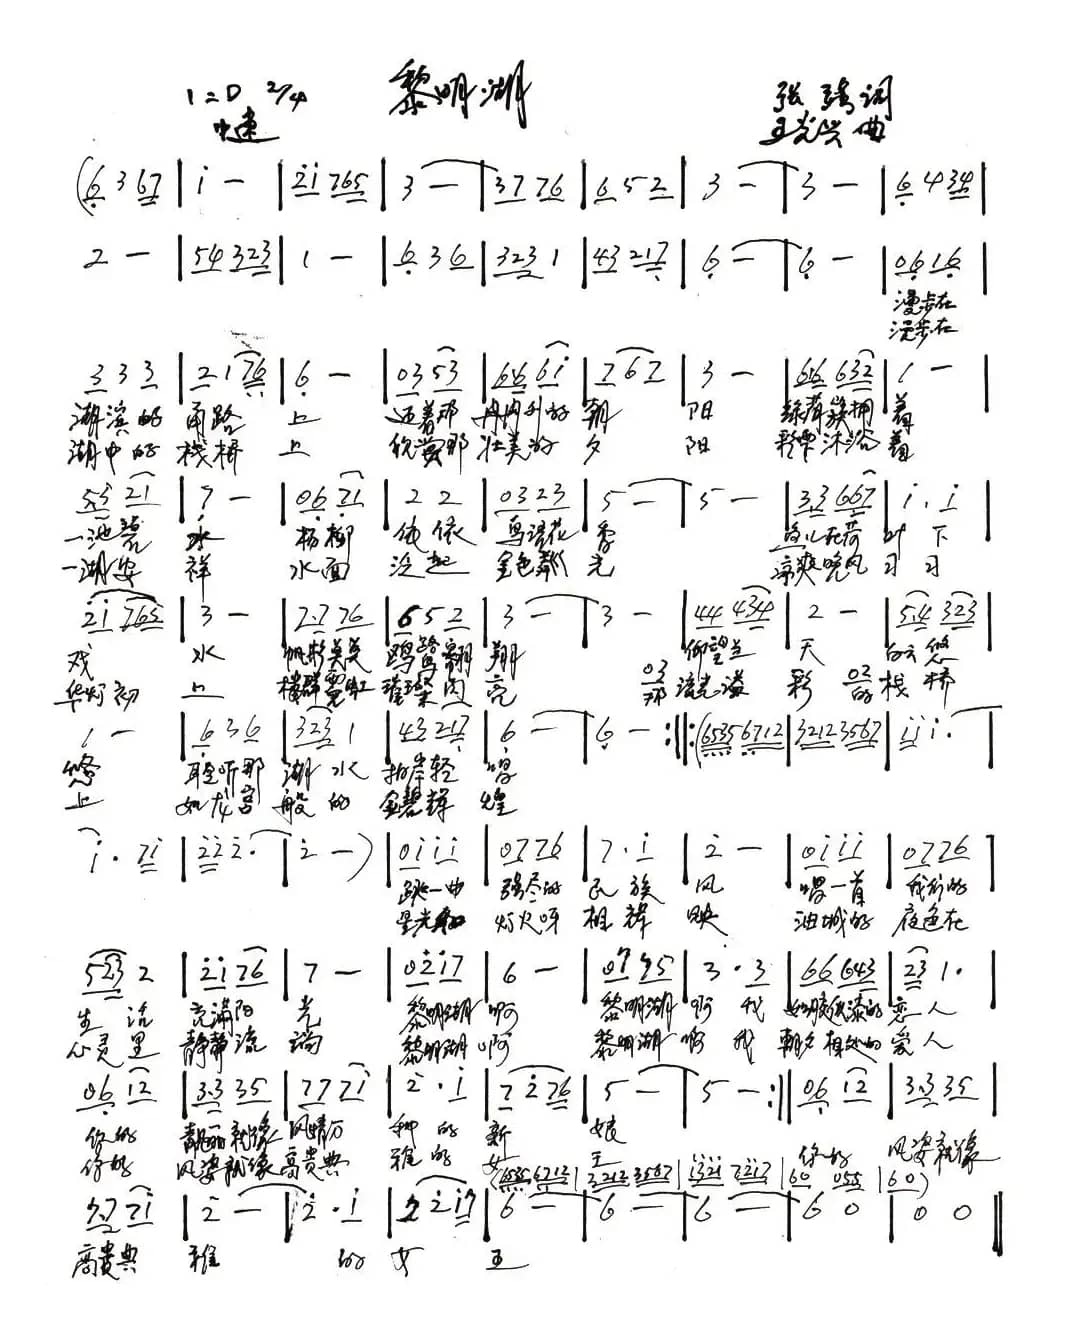 黎明湖
1=D 2/4
中速
张 词
王光兴 曲
(6 3 67 | i — | 2i 765 | 3 — | 37 76 | 6 5 2 | 3 — | 3 — | 6 4 34 |
2 — | 54 323 | 1 — | 6 3 6 | 323 1 | 43 217 | 6 — | 6 — | 06 16 |
漫步在
漫步在
3 3 3 | 2 1 76 | 6 — | 03 53 | 66 61 | 7 67 | 3 — | 66 632 | 1 — |
湖滨的 甬路 上 迎着那 冉冉升的 朝 阳 绿荷簇拥 着
湖中的 栈桥 上 欣赏那 壮美的 夕 阳 彩霞沐浴 着
55 21 | 7 — | 06 71 | 2 2 | 03 23 | 5 — | 5 — | 33 667 | i . i |
一池碧 水 杨柳 依依 鸟语花 香 鱼儿在荷 叶 下
一湖安 祥 水面 泛起 金色 光 凉爽晚风 习 习
2i 765 | 3 — | 77 76 | 6 5 2 | 3 — | 3 — | 44 434 | 2 — | 54 323 |
戏 水 帆影 鸥鹭翱 翔 仰望兰 天 白云悠
华灯初 上 楼群霓虹 璀璨闪 亮 03 那 流光溢 彩 02 的 栈 桥
1 — | 6 3 6 | 323 1 | 43 217 | 6 — | 6 — :||: (6535 6712 | 3212 3567 | i i i . |
悠 聆听那 湖 水 拍岸轻 唱
上 如龙宫 般 的 金碧辉 煌
i . 7i | 2 2 2 . | 2 — ) | 0i i i | 07 76 | 7 . i | 2 — | 0i i i | 07 76 |
跳一曲 强尽的 民 族 风 唱一首 我们的
星光和 灯火呀 相 辉 映 油城的 夜色在
523 2 | 2i 76 | 7 — | 02 i7 | 6 — | 07 75 | 3 . 3 | 66 643 | 23 1 . |
生 活 充满阳 光 黎明湖 啊 黎明湖 啊 我 如胶似漆的 恋 人
心灵里 静静流 淌 黎明湖 啊 黎明湖 啊 我 朝夕相处的 爱 人
06 12 | 3.3 35 | 77 7i | 2 . i | 7 2 76 | 5 — | 5 — :|| 06 12 | 3.3 35 |
你的 靓丽就像 风情万 种 的 新 娘
你的 风姿就像 高贵典 雅 的 女 王 你的 风姿就像
(6535 6712 | 3212 3567 | i321 7217 | 60 055 | 60)
7.7 7i | 2 — | 2 . i | 7 2 i7 | 6 — | 6 — | 6 — | 6 0 | 0 0 ||
高贵典 雅 的 女 王